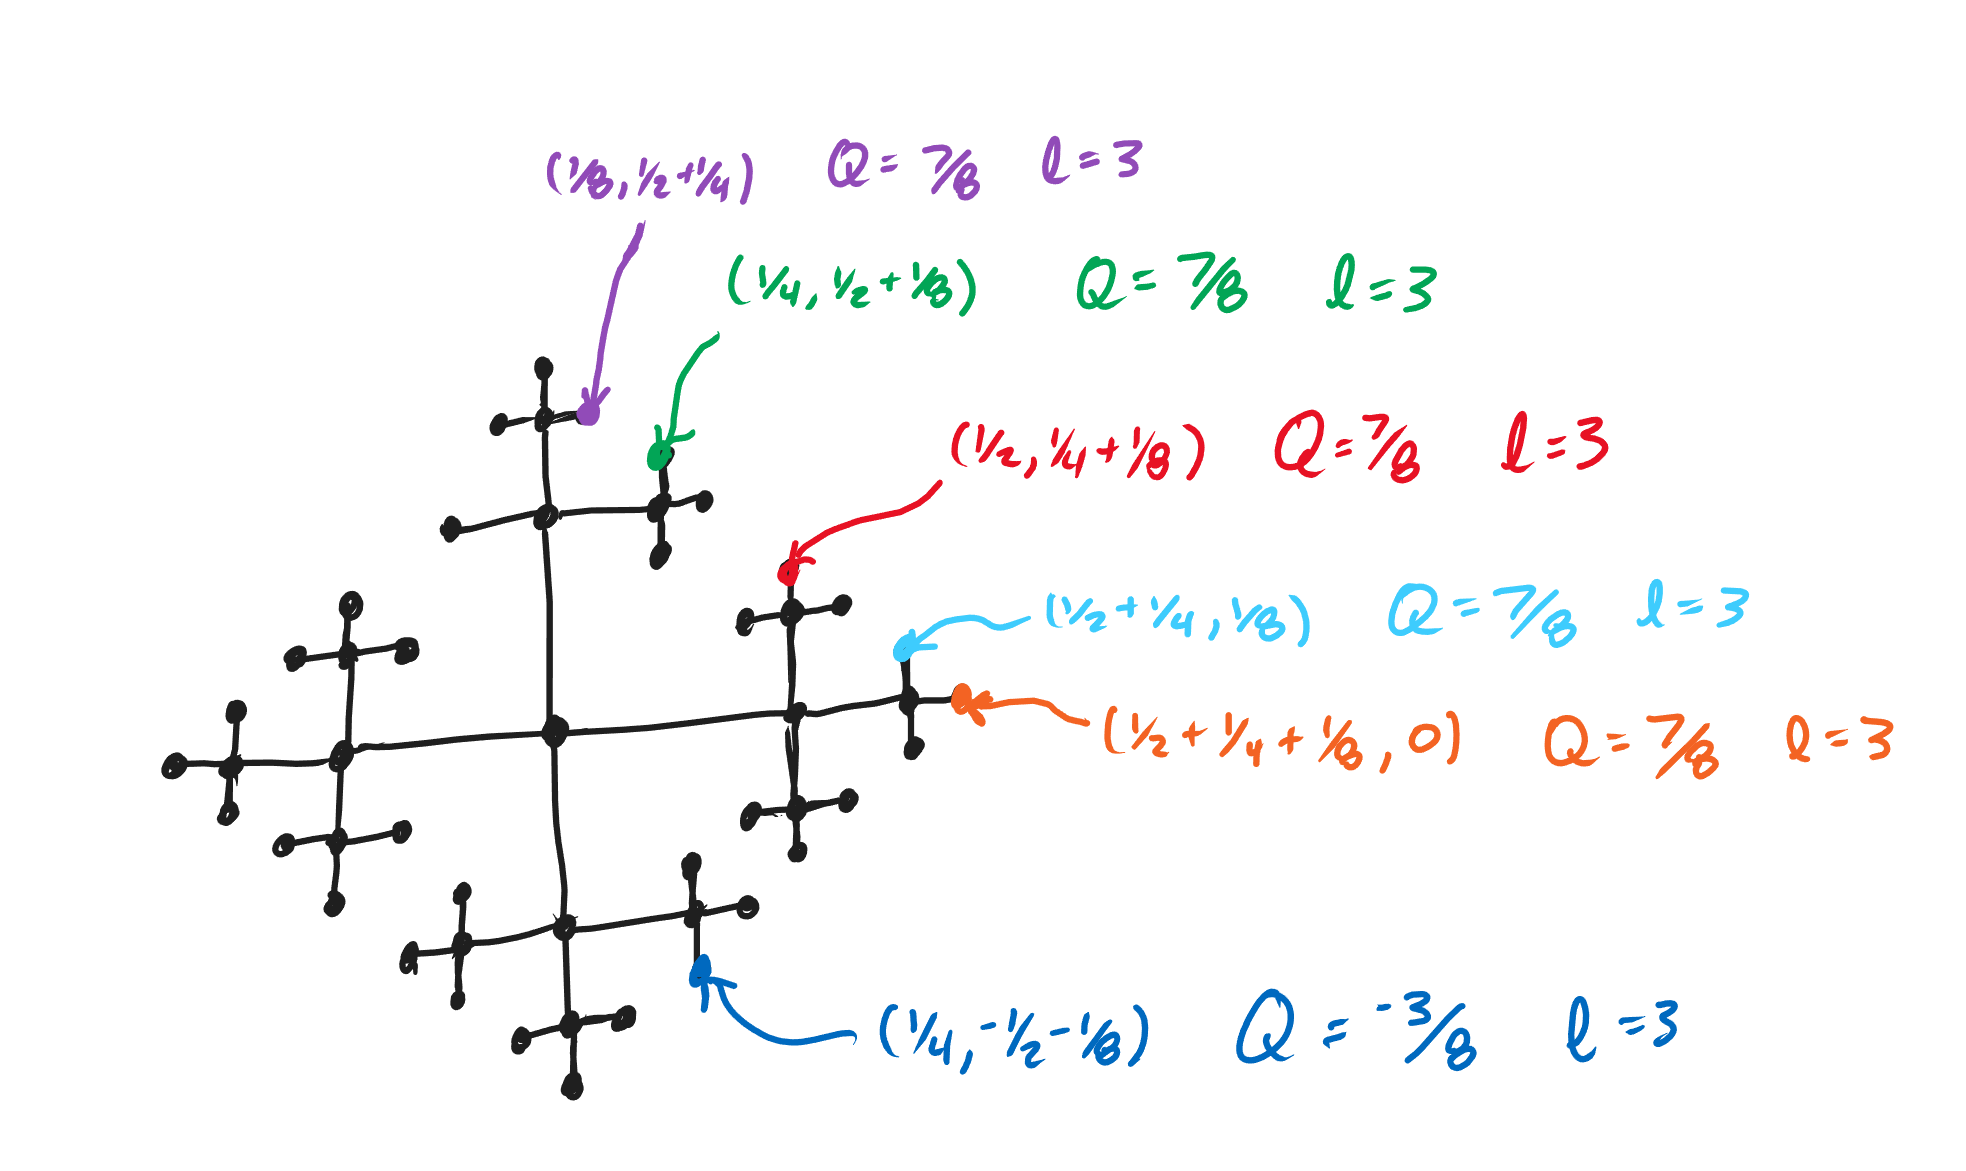 (1/8, 1/2 + 1/4) Q = 7/8 l = 3
(1/4, 1/2 + 1/8) Q = 7/8 l = 3
(1/2, 1/4 + 1/8) Q = 7/8 l = 3
(1/2 + 1/4, 1/8) Q = 7/8 l = 3
(1/2 + 1/4 + 1/8, 0) Q = 7/8 l = 3
(1/4, -1/2 - 1/8) Q = -3/8 l = 3